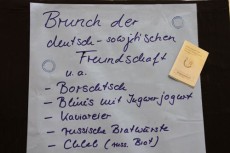 Brunch der
deutsch-sowjetischen
Freundschaft
u.a.
- Borschtsch
- Blinis mit Ingwerjogurt
- Kaviareier
- russische Bratwürste
- Chleb (russ. Brot)